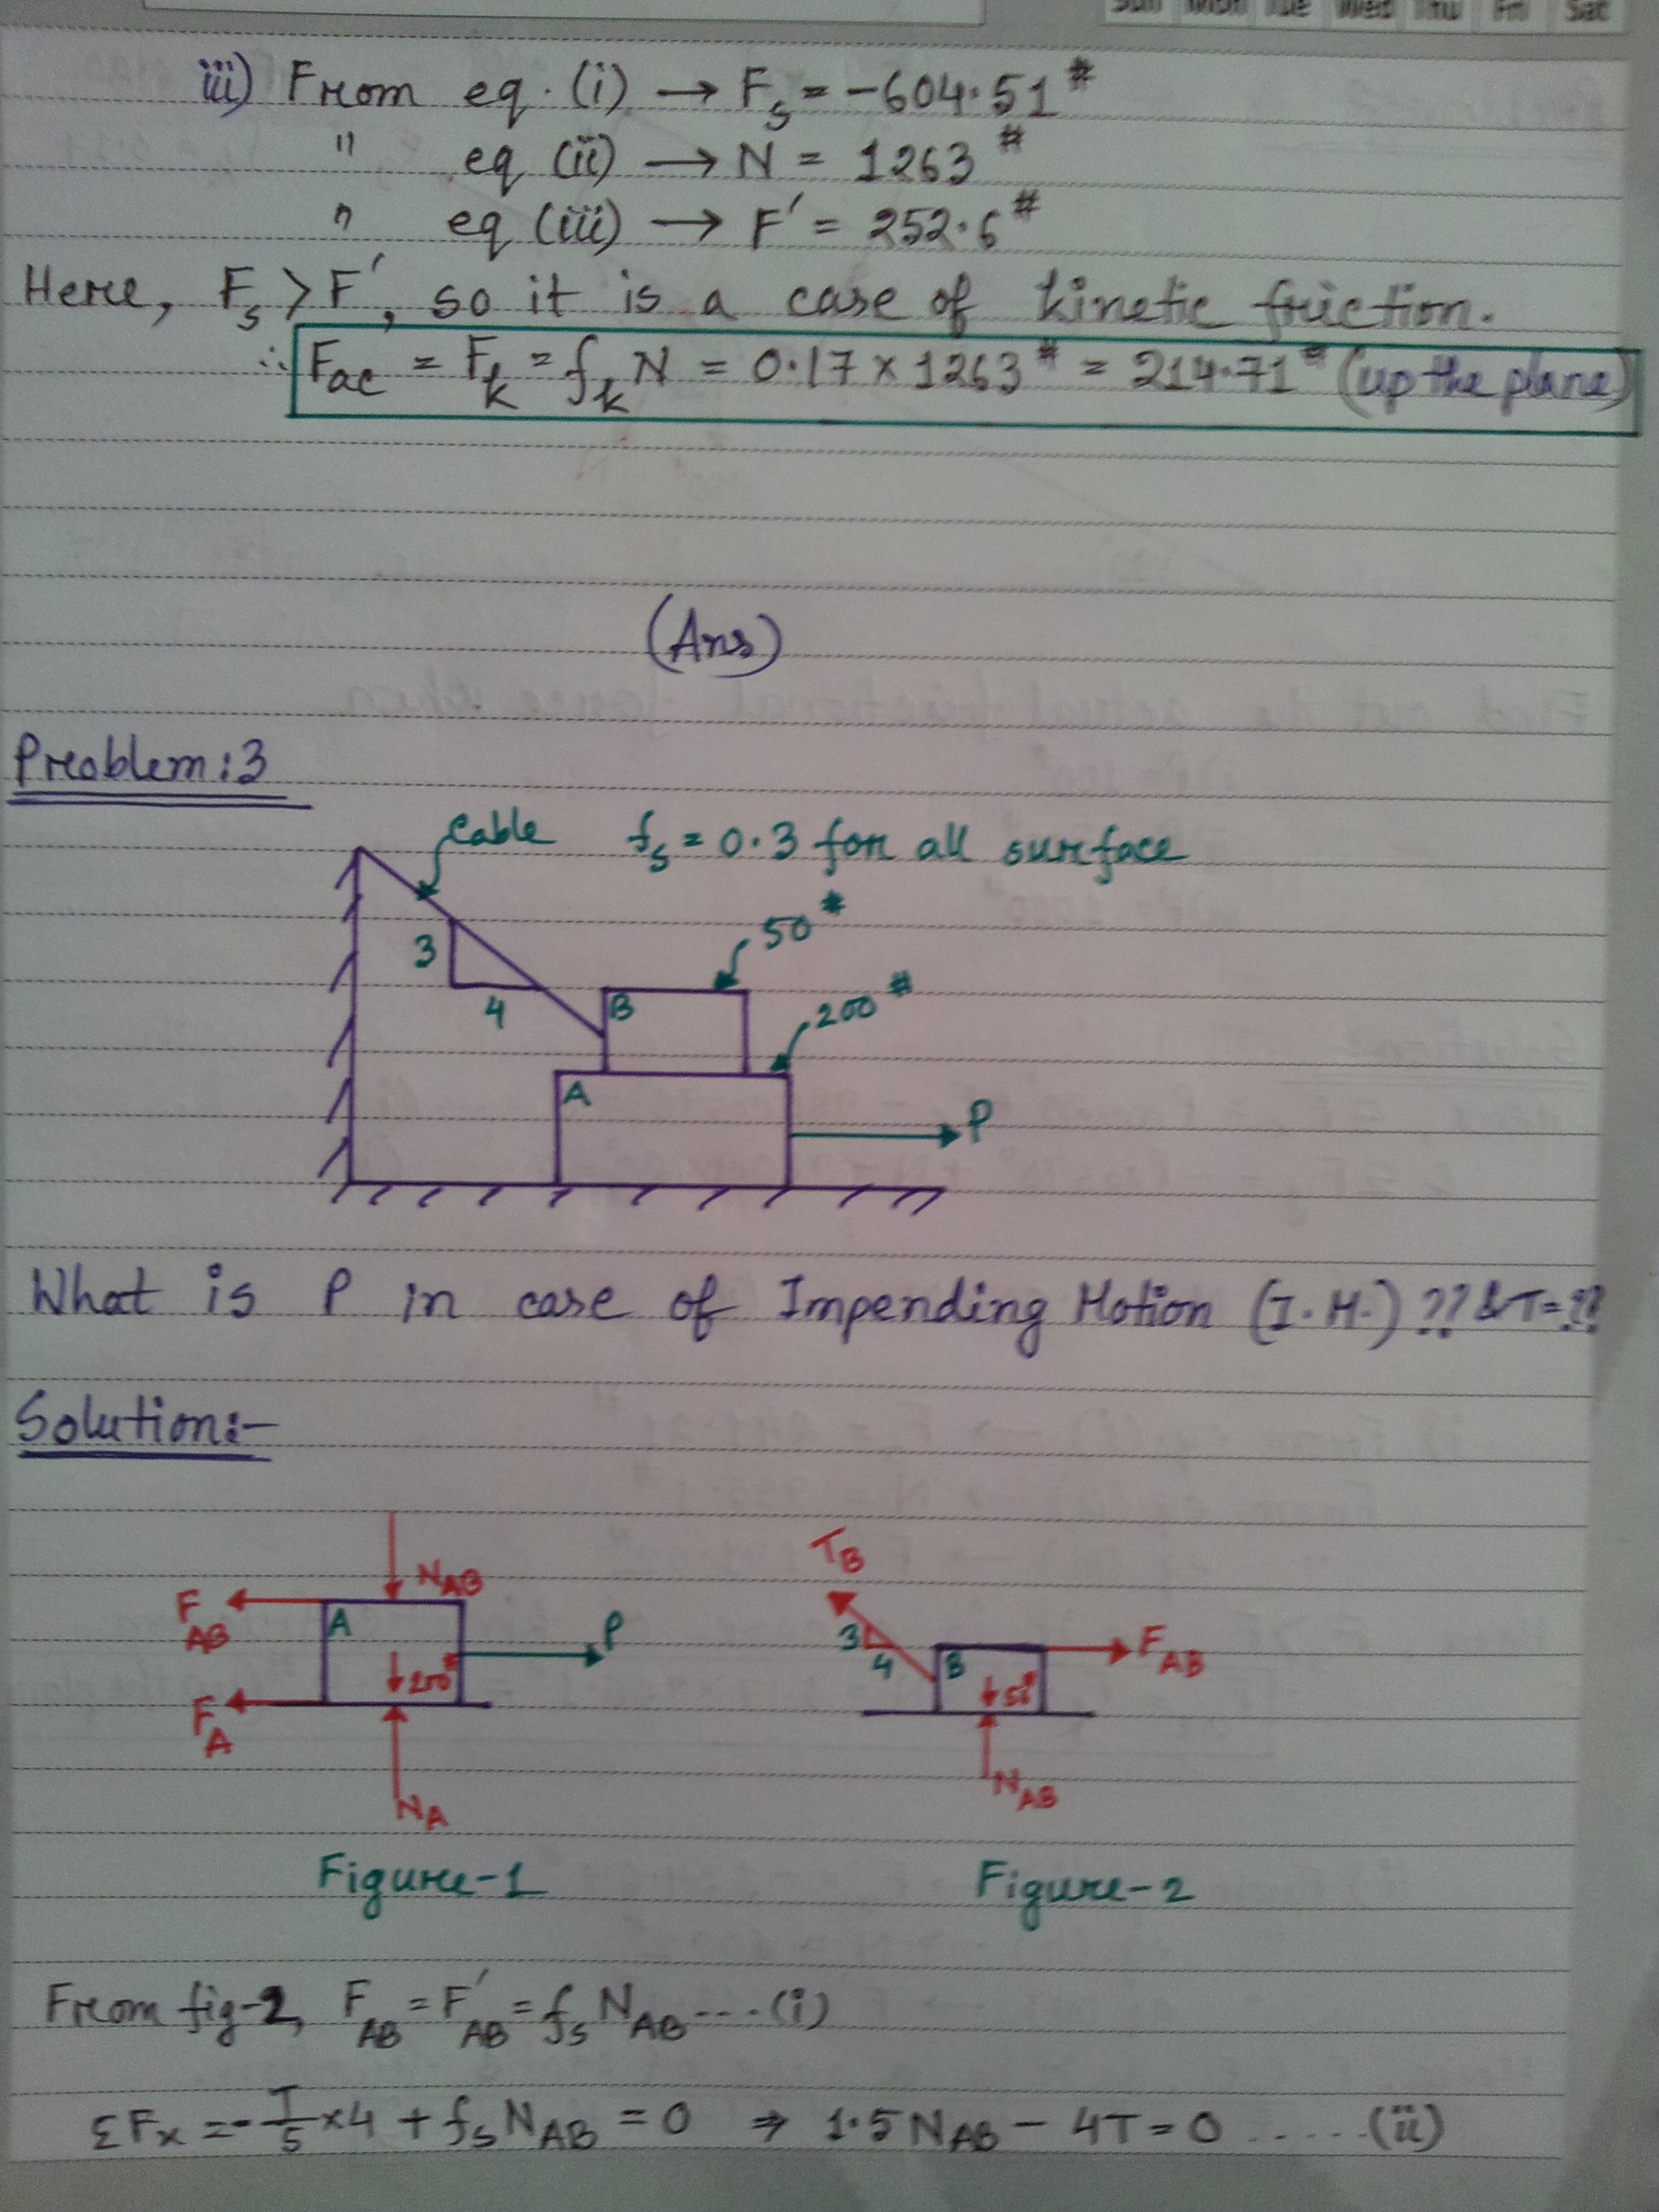 Sun Mon Tue Wed Thu Fri Sat
iii) From eq. (i) → Fs = -604.51#
" eq (ii) → N = 1263#
" eq (iii) → F' = 252.6#
Here, Fs > F', so it is a case of kinetic friction.
∴ Fac = Fk = fk N = 0.17 × 1263# = 214.71# (up the plane)
(Ans)
Problem:3
Cable fs = 0.3 for all surface
50#
3
4
B
200#
A
P
What is P in case of Impending Motion (I.M.) ?? & T=??
Solution:-
NAB TB
FAB A P 3 4 B FAB
200# 50#
FA
NA NAB
Figure-1 Figure-2
From fig-2, FAB = F'AB = fs NAB ....(i)
ΣFx = -T/5 ×4 + fs NAB = 0 ⇒ 1.5 NAB - 4T = 0 .....(ii)